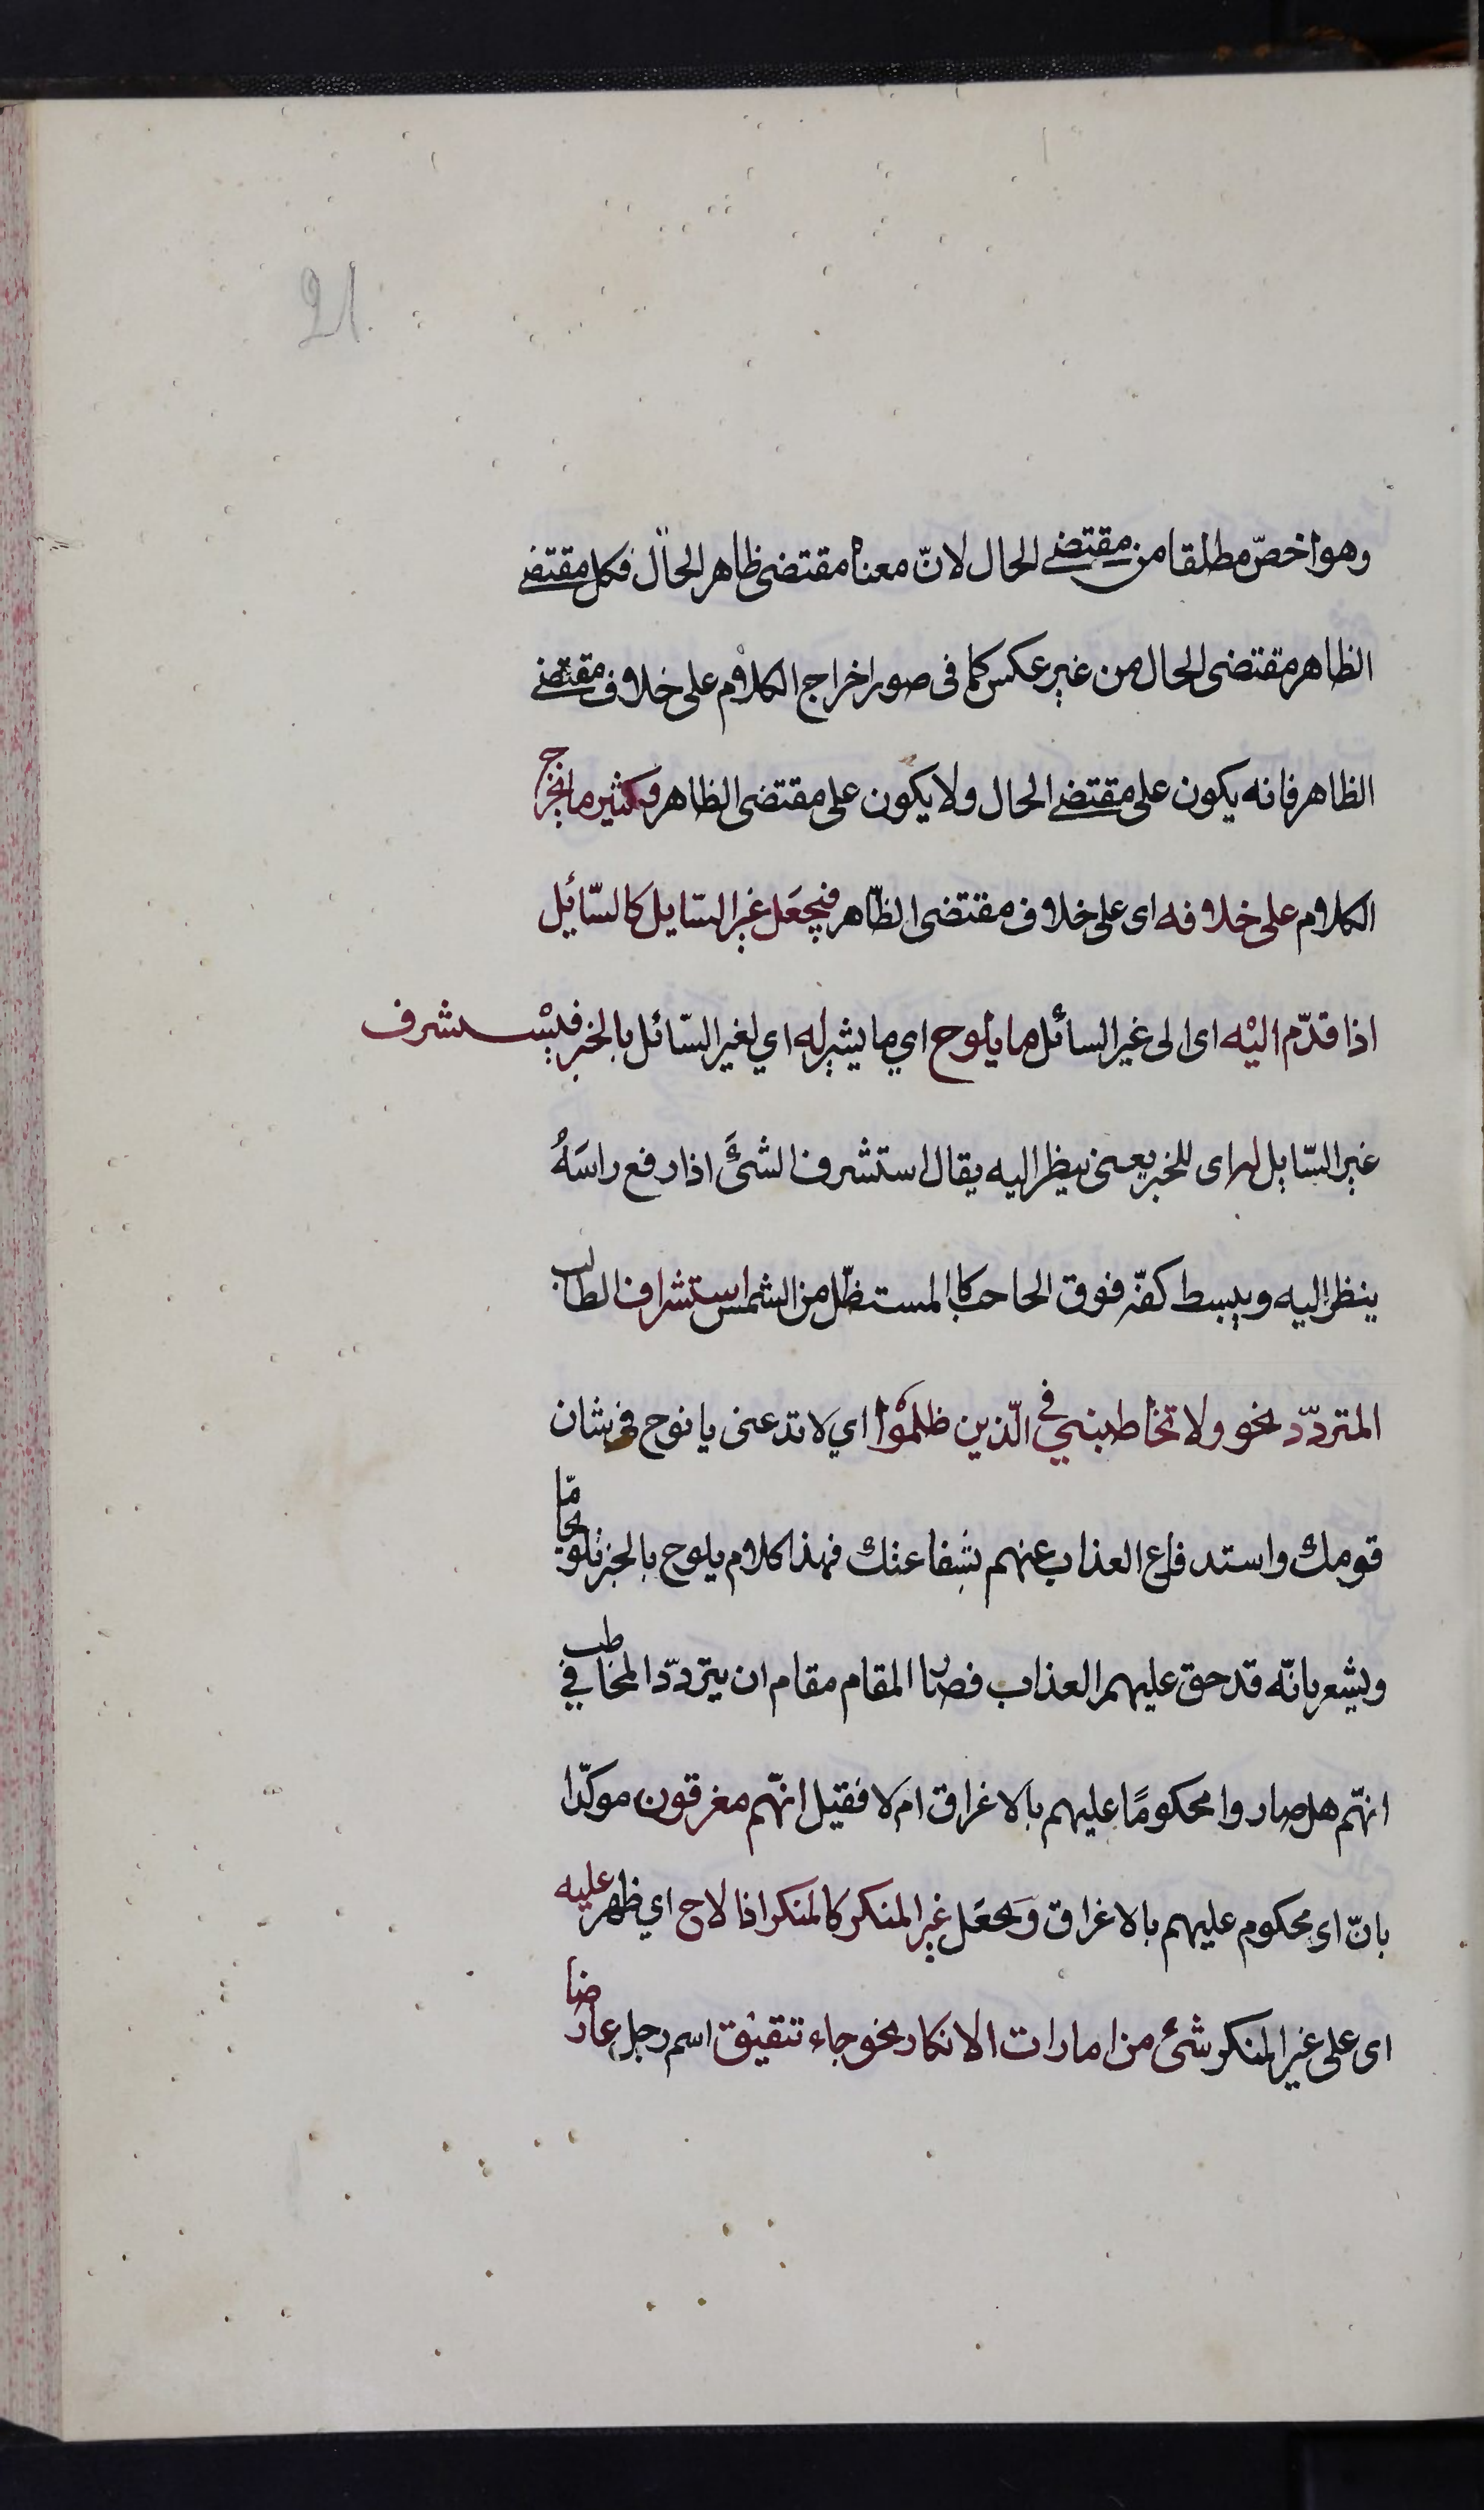 21.
وهو اخصّ مطلقا من مقتضى الحال لانّ معناه مقتضى ظاهر الحال فكل مقتضى
الظاهر مقتضى الحال من غير عكس كما فى صور اخراج الكلام على خلاف مقتضى
الظاهر فانه يكون على مقتضى الحال ولا يكون على مقتضى الظاهر وكثير ما يخرج
الكلام على خلافه اى على خلاف مقتضى الظّاهر فيجعَل غير السّايل كالسّائل
اذا قدّم اليْه اى الى غير السائل ما يلوح اي ما يشير له اي لغير السّائل بالخبر فيسْتشرف
غير السّايل له اى للخبر يعنى ينظر اليه يقال استشرف الشئَ اذا رفع راسَهُ
ينظر اليه ويبسط كفّه فوق الحاجب كالمستظّل من الشمس استشراف الطالب
المتردّد نحو ولا تخاطبني في الّذين ظلمُوْا اي لا تدعنى يا نوح في شان
قومك واستدفاع العذاب عنهم بشفاعتك فهذا كلام يلوح بالخبر تلويحا مّا
ويشعر بانّه قد حق عليهم العذاب فصار المقام مقام ان يتردّد المخاطب في
انهّم هل صاروا محكومًا عليهم بالاغراق ام لا فقيل انهّم مغرقون موكّدا
بانّ اى محكوم عليهم بالاغراق وَيجعَل غير المنكر كالمنكر اذا لاح اي ظهر عليه
اى على غير المنكر شئ من امارات الانكار نحو جاء تنقيق اسم رجل عارضا